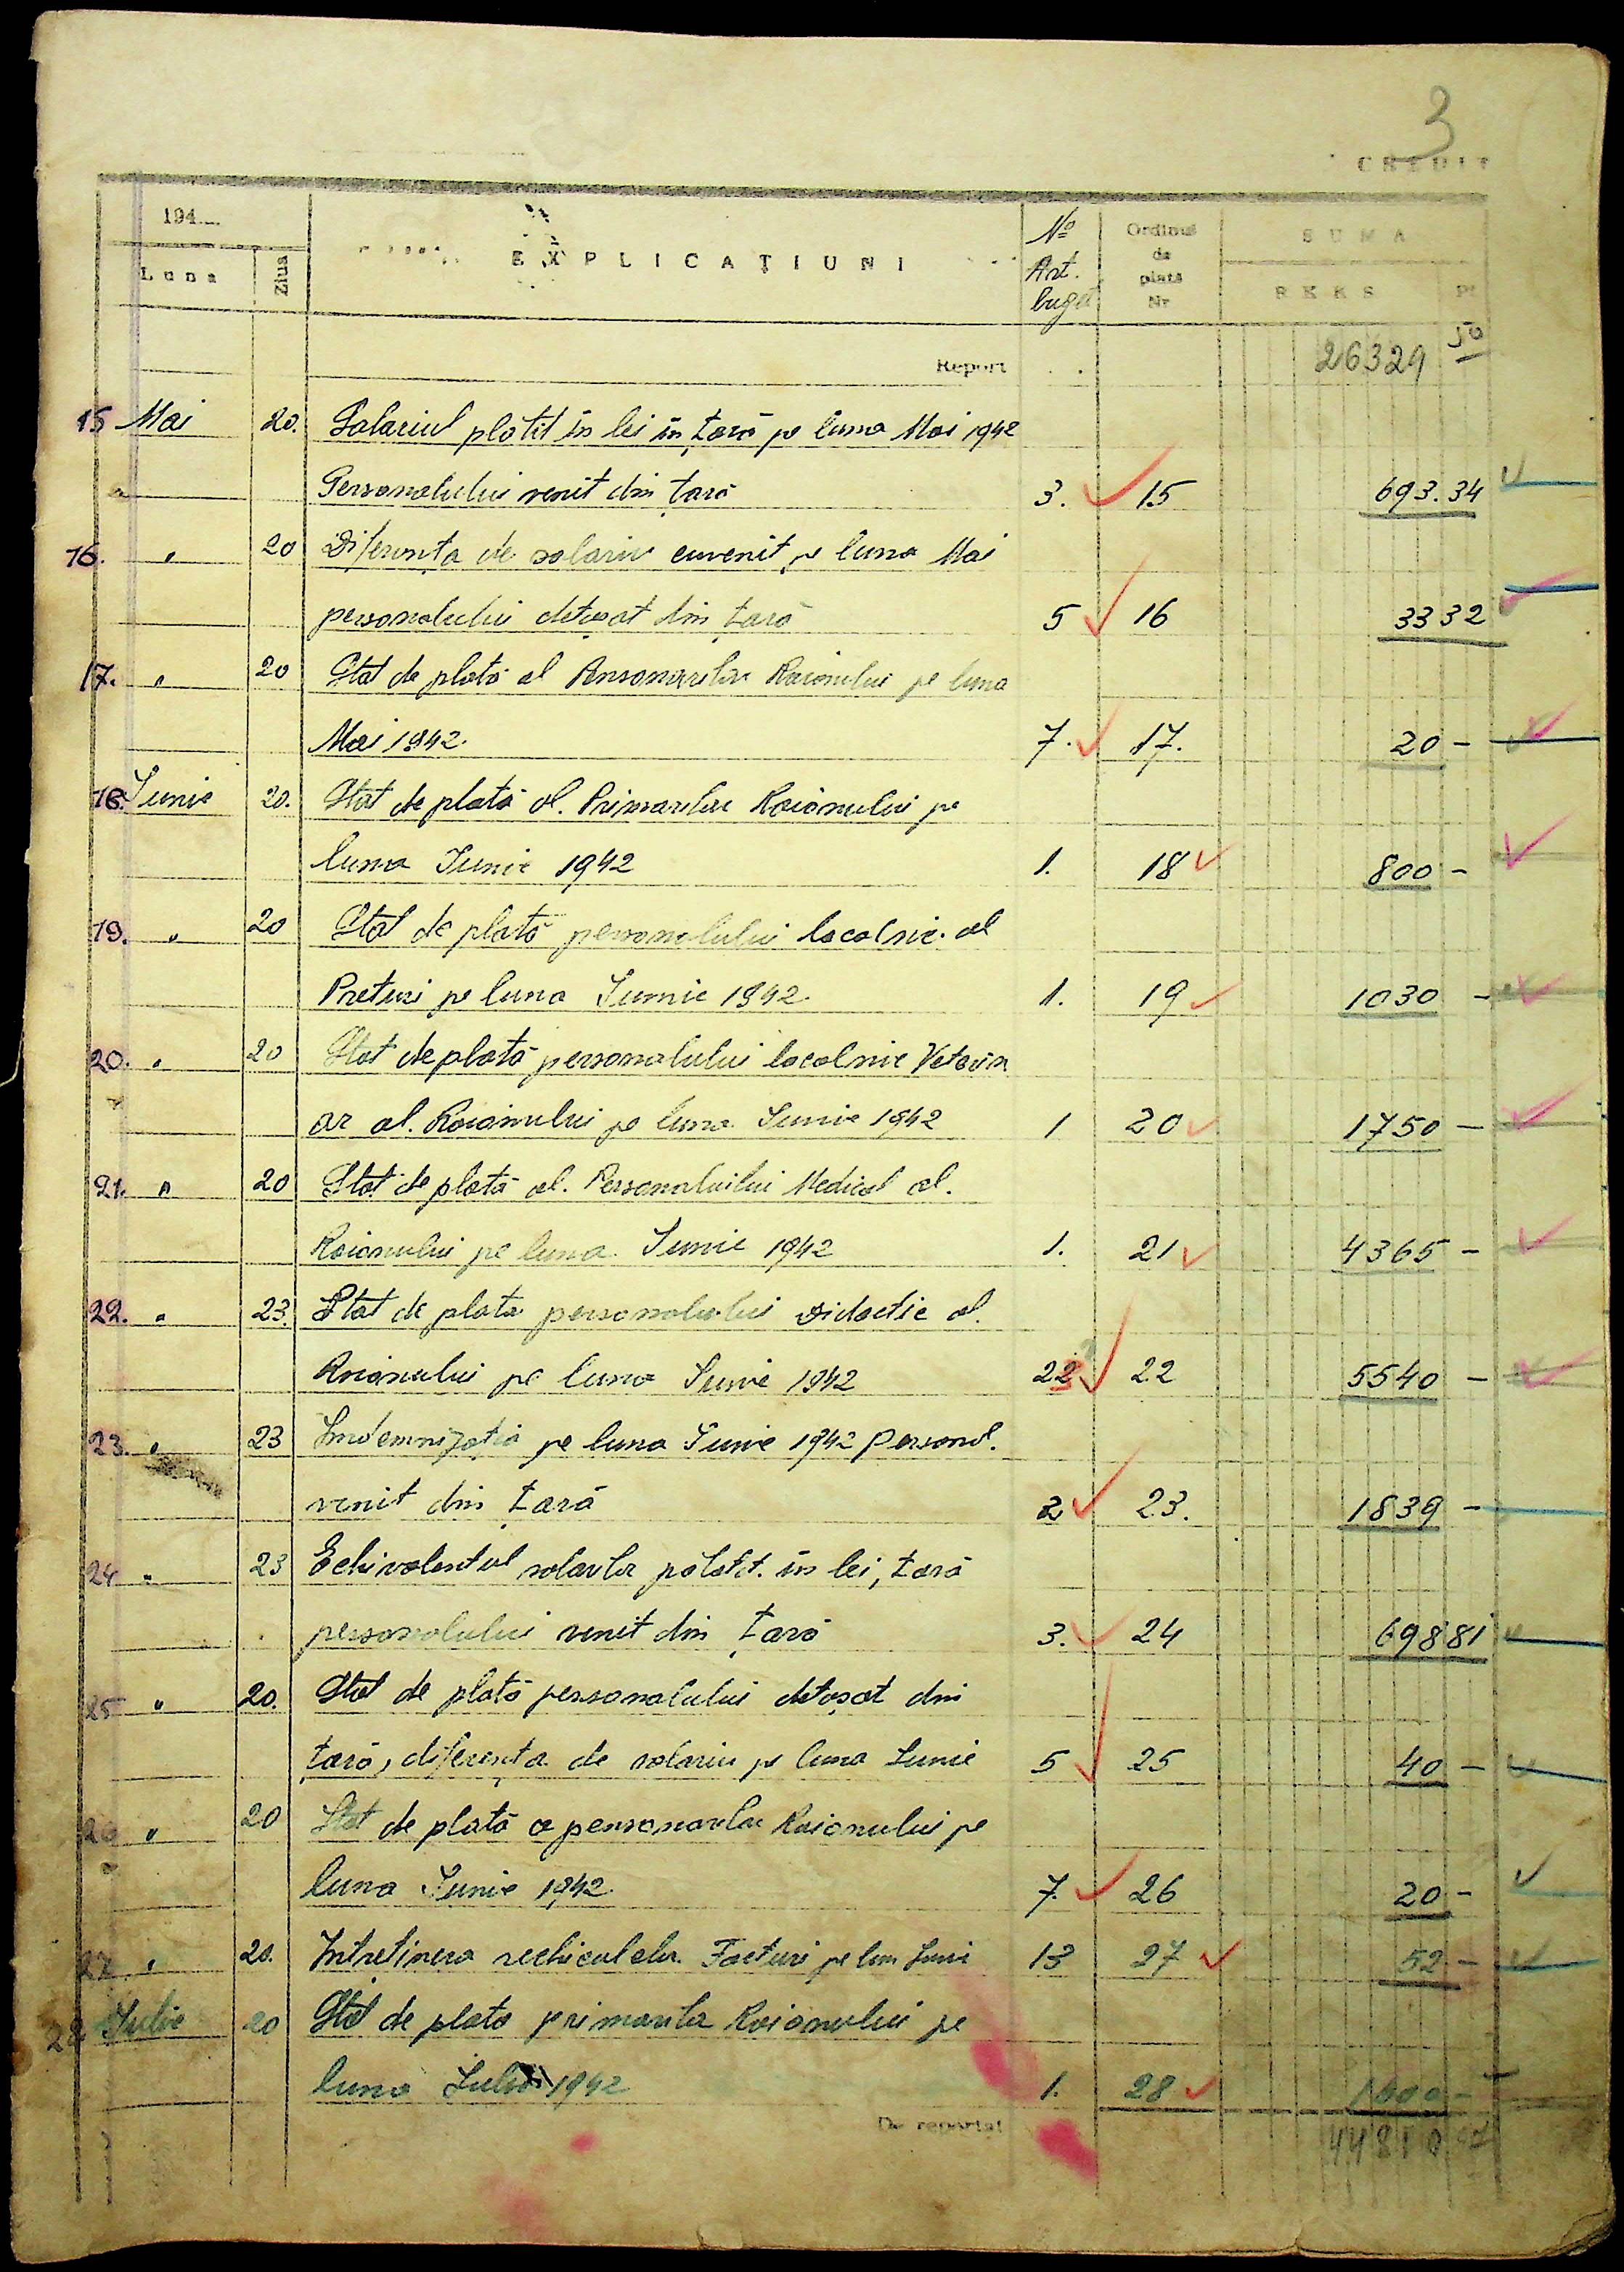 3
CREDIT
194
Luna Ziua EXPLICAȚIUNI No Art. buget Ordinul de plată Nr SUMA RKKS Pf
Report 26329 50
15 Mai 20. Salariul plătit în lei în țară pe luna Mai 1942
Personalului venit din țară 3. 15 693.34
16. " 20 Diferența de salariu cuvenit pe luna Mai
personalului detașat din țară 5 16 3332
17. " 20 Stat de plată al Raionului pe luna
Mai 1942. 7. 17. 20 -
18. Iunie 20. Stat de plată al. Primarilor Raionului pe
luna Iunie 1942 1. 18 800 -
19. " 20 Stat de plată personalului localnic al
Preturi pe luna Iunie 1942. 1. 19 1030 -
20. " 20 Stat de plată personalului localnic Veterin
ar al. Raionului pe luna Iunie 1942 1 20 1750 -
21. " 20 Stat de plată al. Personalului Medical al.
Raionului pe luna Iunie 1942 1. 21 4365 -
22. " 23. Stat de plata personalului Didactic al.
Raionului pe luna Iunie 1942 22 22 5540 -
23. " 23 Indemnizația pe luna Iunie 1942 personal.
venit din țară 2 23. 1839 -
24 " 23 Echivalentul salarilor plătit. în lei, țară
personalului venit din țară 3. 24 69881
25 " 20. Stat de plată personalului detașat din
țară, diferența de salariu pe luna Iunie 5 25 40 -
26 " 20 Stat de plată a Raionului pe
luna Iunie 1942. 7. 26 20 -
27. " 20. Intreținerea vechiculelor. Facturi pe lun Iunie 13 27 52 -
28 Iulie 20 Stat de plata primarilor Raionului pe
luna Iulie 1942 1. 28
De reportat 44810